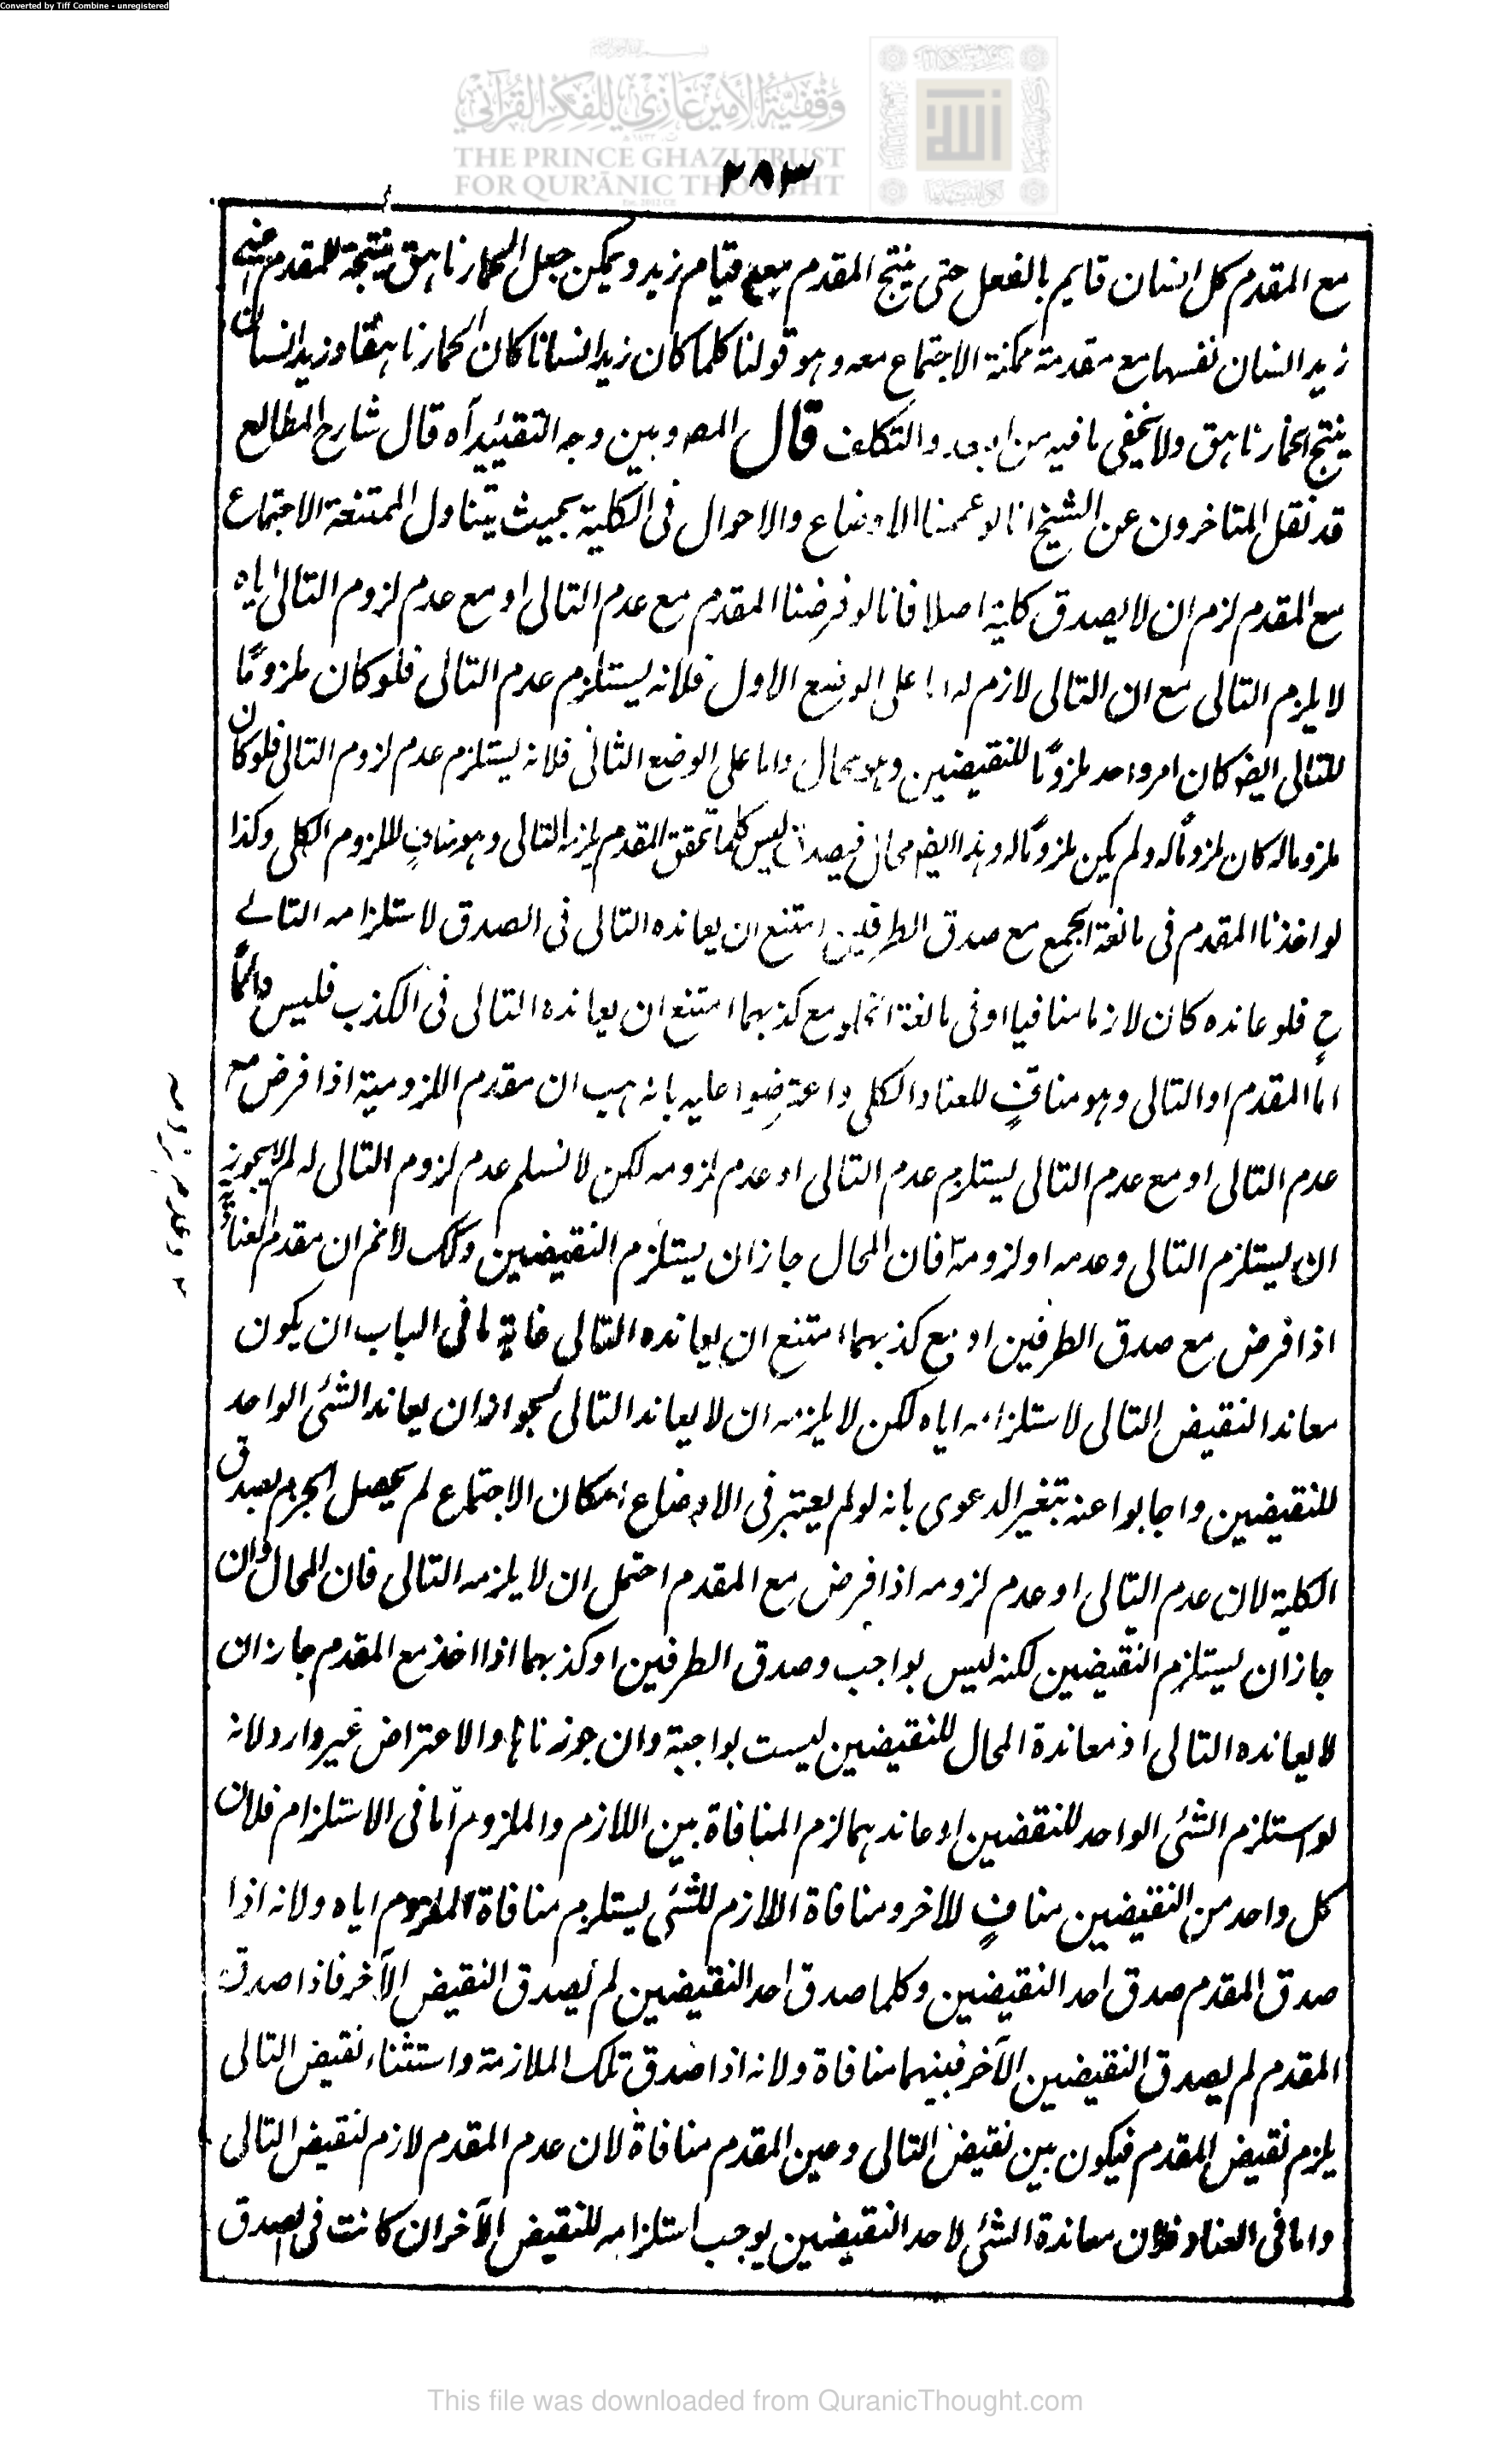 Converted by Tiff Combine - unregistered
وقفية الأمير غازي للفكر القرآني
THE PRINCE GHAZI TRUST
FOR QUR'ĀNIC THOUGHT
٢٨٣
مع المقدم كل انسان قايم بالفعل حتى ينتج المقدم مع قيام زيد ويمكن جعل الحمار ناهق نتيجة للمقدم
زيد انسان نفسها مع مقدمة ممكنة الاجتماع معه وهو قولنا كلما كان زيد انسانا كان الحمار ناهقا وزيد انسان
ينتج الحمار ناهق ولا يخفى ما فيه من والتكلف قال المصـ وبين وجه التقئيد آه قال شارح المطالع
قد نقل المتاخرون عن الشيخ انا لو عممنا الاوضاع والاحوال فى الكلية بحيث يتناول الممتنعة الاجتماع
مع المقدم لزم ان لا يصدق كلية اصلا فانا لو فرضنا المقدم مع عدم التالى او مع عدم لزوم التالى اياه
لا يلزم التالى مع ان التالى لازم له اما على الوضع الاول فلانه يستلزم عدم التالى فلو كان ملزومًا
للتالى ايضـ كان امر واحد ملزومًا للنقيضين وهو محال واما على الوضع الثانى فلانه ليستلزم عدم لزوم التالى فلو كان
ملزوما له كان ملزومًا له ولم يكن ملزومًا له وهذا ايضـ محال فيصدق ليس كلما تحقق المقدم يلزمه التالى وهو مناقٍ للزوم الكلى وكذا
لو اخذنا المقدم فى مانعة الجمع مع صدق الطرفين امتنع ان يعانده التالى فى الصدق لاستلزامه التالے
ح فلو عانده كان لازما منافيا او فى مانعة الخلو مع كذبهما امتنع ان يعانده التالى فى الكذب فليس دائمًا
اما المقدم او التالى وهو مناقٍ للعناد الكلى واعترضوا عليه بانه هب ان مقدم اللزومية اذا فرض مع
عدم التالى او مع عدم التالى يستلزم عدم التالى او عدم لزومه لكن لا نسلم عدم لزوم التالى له لم لا يجوز
ان يستلزم التالى وعدمه او لزومه فان المحال جاز ان يستلزم النقيضين وكك لانم ان مقدم العنادية
اذا فرض مع صدق الطرفين او مع كذبهما امتنع ان يعانده التالى غاية ما فى الباب ان يكون
معاندا لنقيض التالى لاستلزامه اياه لكن لا يلزمه ان لا يعاند التالى لجواز ان يعاند الشئ الواحد
للنقيضين واجابوا عنه بتغير الدعوى بانه لو لم يعتبر فى الاوضاع امكان الاجتماع لم يحصل الجزم بصدق
الكلية لان عدم التالى او عدم لزومه اذا فرض مع المقدم احتمل ان لا يلزمه التالى فان المحال وان
جاز ان يستلزم النقيضين لكنه ليس بواجب وصدق الطرفين او كذبهما اذا اخذ مع المقدم جاز ان
لا يعانده التالى اذ معاندة المحال للنقيضين ليست بواجبة وان جوزناها والاعتراض غير وارد لانه
لو استلزم الشئ الواحد للنقضين او عاندهما لزم المنافاة بين اللازم والملزوم اما فى الاستلزام فلان
كل واحد من النقيضين منافٍ للآخر ومنافاة اللازم للشئ يستلزم منافاة الملزوم اياه ولانه اذا
صدق المقدم صدق احد النقيضين وكلما صدق احد النقيضين لم يصدق النقيض الآخر فاذا صدق
المقدم لم يصدق النقيضين الآخر فبينهما منافاة ولانه اذا صدق تلك الملازمة واستثناء نقيض التالى
يلزم نقيض المقدم فيكون بين نقيض التالى وعين المقدم منافاة لان عدم المقدم لازم لنقيض التالى
واما فى العناد فلان معاندة الشئ لاحد النقيضين يوجب استلزامه للنقيض الآخر ان كانت فى الصدق
This file was downloaded from QuranicThought.com